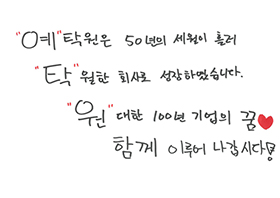 "예"탁원은 50년의 세월이 흘러
"탁"월한 회사로 성장하였습니다.
"원"대한 100년 기업의 꿈♥
함께 이루어 나갑시다!